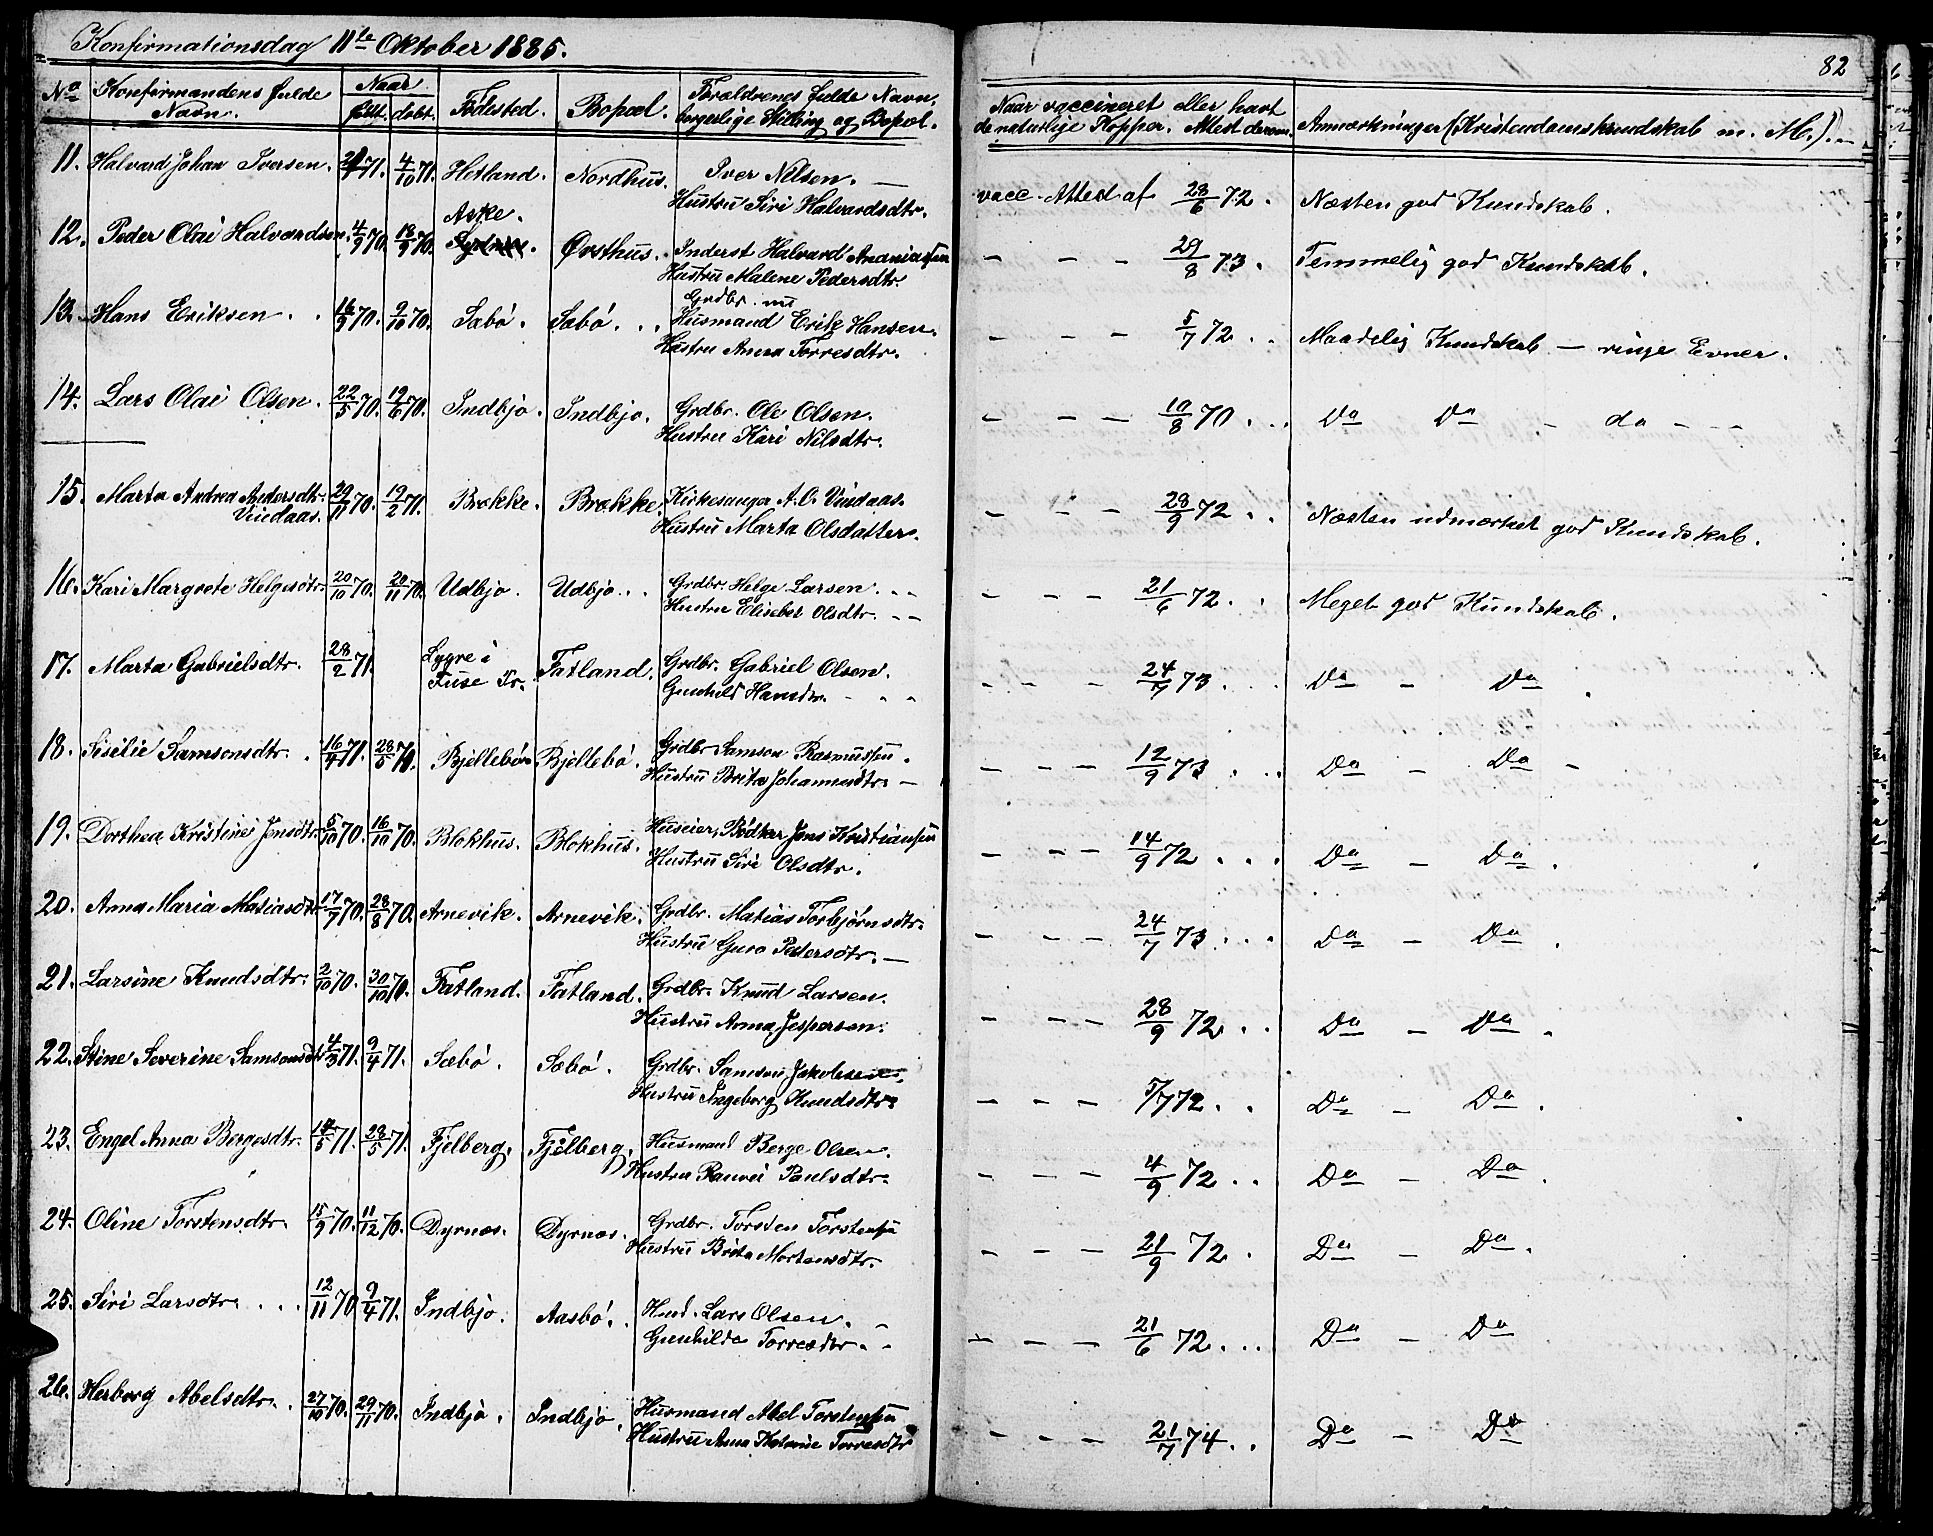 Konfirmationsdag 11te Oktober 1885.
82
No Konfirmandens fulde Navn. Naar født. døbt. Fødested. Bopæl. Forældrenes fulde Navn, borgerlige Stilling og Bopæl. Naar vaccineret eller havt de naturlige Kopper. Attest derom. Anmærkninger (Kristendomskundskab m. M.).
11. Halvard Johan Iversen. 71. 4/10 71. Hetland. Nordhus. Iver Nilsen. —
Hustru Siri Halvardsdtr. vacc. Attest af 28/6 72. Næsten god Kundskab.
12. Peder Olai Halvardsen. 4/9 70. 18/9 70. Aske. Østhus. Inderst Halvard Ananiassen
Hustru Malene Pedersdtr. – – – 29/8 73. Temmelig god Kundskab.
13. Hans Eriksen. . 70. 9/10 70. Sæbö. Sæbö. . . Grdbr. nu
Husmand Erik Hansen.
Hustru Anna Torresdtr. – – – 5/7 72. . Maadelig Kundskab – ringe Evner.
14. Lars Olai Olsen. 22/5 70. 19/6 70. Indbjo. Indbjo. Grdbr. Ole Olsen.
Hustru Kari Nilsdtr. – – – 10/8 70. . . Do Do – do – –
15. Marta Andrea Andersdtr. Vindaas. 29/11 70. 19/2 71. Brække. Brække. Kirkesanger A. O. Vindaas.
Hustru Marta Olsdatter. – – – 28/9 72. . Næsten udmærket god Kundskab.
16. Kari Margrete Helgesdtr. 20/10 70. 20/11 70. Udbjo. Udbjo. . . Grdbr. Helge Larsen. . –
Hustru Elisebet Olsdtr. – – – – – 21/6 72. . Meget god Kundskab.
17. Marta Gabrielsdtr. 28/2 71. Lygre i
Fuse Pr. Fatland. Grdbr. Gabriel Olsen.
Gunhild Hansdtr. – . . – – – 24/7 73. . . Do – Do .
18. Sisilie Samsonsdtr. . 16/4 71. 28/5 71. Bjellebö. Bjellebö. Grdbr. Samson Rasmussen.
Hustru Brita Johannesdtr. – – – – 12/9 73. . . Do – Do –
19. Dorthea Kristine Jensdtr. 5/10 70. 16/10 70. Blokhus. Blokhus. Huseier, Bødker Jens Kristiansen
Hustru Siri Olsdtr. – – – 14/9 72. . . Do – Do .
20. Anna Maria Matiasdtr. 17/7 70. 28/8 70. Arnevik. Arnevik. Grdbr. Matias Torbjørnsdtr.
Hustru Guro Pedersdtr. – – – – 24/7 73. . . Do – Do .
21. Larsine Knudsdtr. 2/10 70. 30/10 70. Fatland. Fatland. Grdbr. Knud Larsen.
Hustru Anna Jespersen. – – – 28/9 72. . Do – Do .
22. Stine Severine Samsonsdtr 4/3 71. 9/4 71. Sæbö. Sæbö. Grdbr. Samson Jakobsen.
Hustru Ingeborg Knudsdtr. – – – 5/7 72. . Do – Do .
23. Engel Anna Bergesdtr. 71. 28/5 71. Fjelberg. Fjelberg. Husmand Berge Olsen.
Hustru Ranvei Paulsdtr. – – – 4/9 72. . Do – Do .
24. Oline Torstensdtr. 15/9 70. 11/12 70. Dyrnæs. Dyrnæs. Grdbr. Torsten Torstensen
Hustru Brita Mortensdtr. – – – 21/9 72. Do – Do .
25. Siri Larsdtr. . . . 12/11 70. 9/4 71. Indbjo. Aasbö. Hmd. Lars Olsen. –
Gunhilde Torresdtr. – – – – 21/6 72. . . Do – Do
26. Herborg Abelsdtr. . 27/10 70. 29/11 70. Indbjo. Indbjo. Husmand Abel Torstensen
Hustru Anna Katrine Torresdtr – – – 21/7 74. . Do – Do